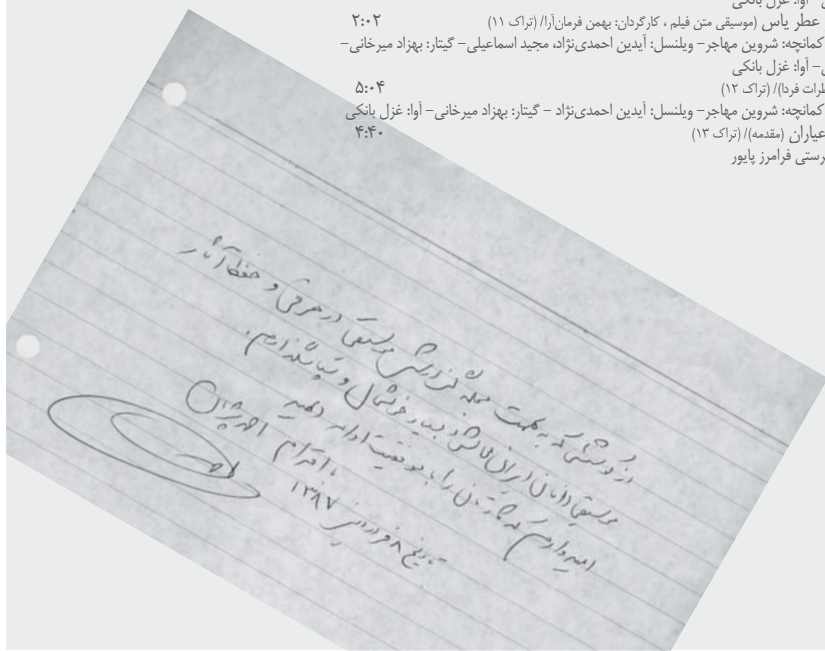 آوا: غزل بانکی
عطر یاس (موسیقی متن فیلم ، کارگردان: بهمن فرمان‌آرا)/ (تراک ۱۱) ۲:۰۲
کمانچه: شروین مهاجر– ویلنسل: آیدین احمدی‌نژاد، مجید اسماعیلی– گیتار: بهزاد میرخانی–
– آوا: غزل بانکی
فردا)/ (تراک ۱۲) ۵:۰۴
کمانچه: شروین مهاجر– ویلنسل: آیدین احمدی‌نژاد – گیتار: بهزاد میرخانی– آوا: غزل بانکی
عیاران (مقدمه)/ (تراک ۱۳) ۴:۴۰
فرامرز پایور
از کوششی که به همت مجله گزارش موسیقی در معرفی و حفظ آثار
موسیقی‌دانان ایرانی بسیار خوشحال و سپاسگذارم.
امیدوارم که کارتان را با موفقیت ادامه دهید
با احترام احمد پژمان
تاریخ ۸ فروردین ۱۳۸۷